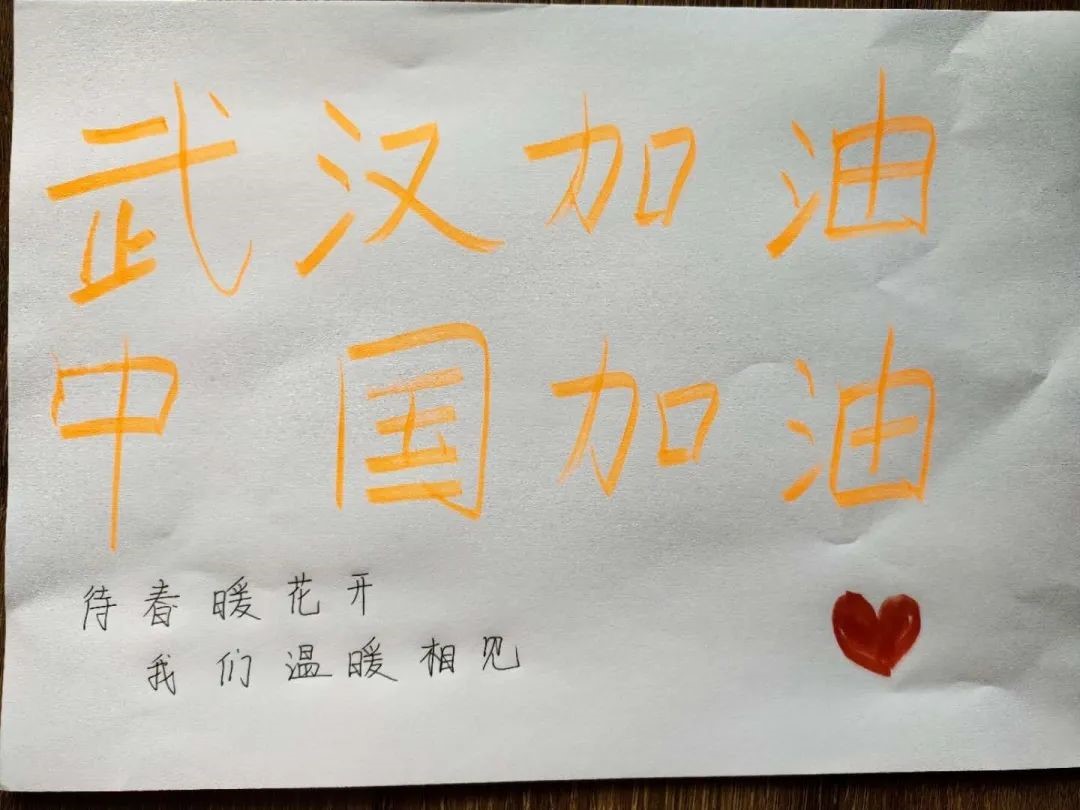 武汉加油
中国加油
待春暖花开
我们温暖相见